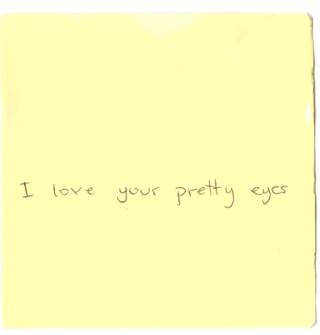 I love your pretty eyes